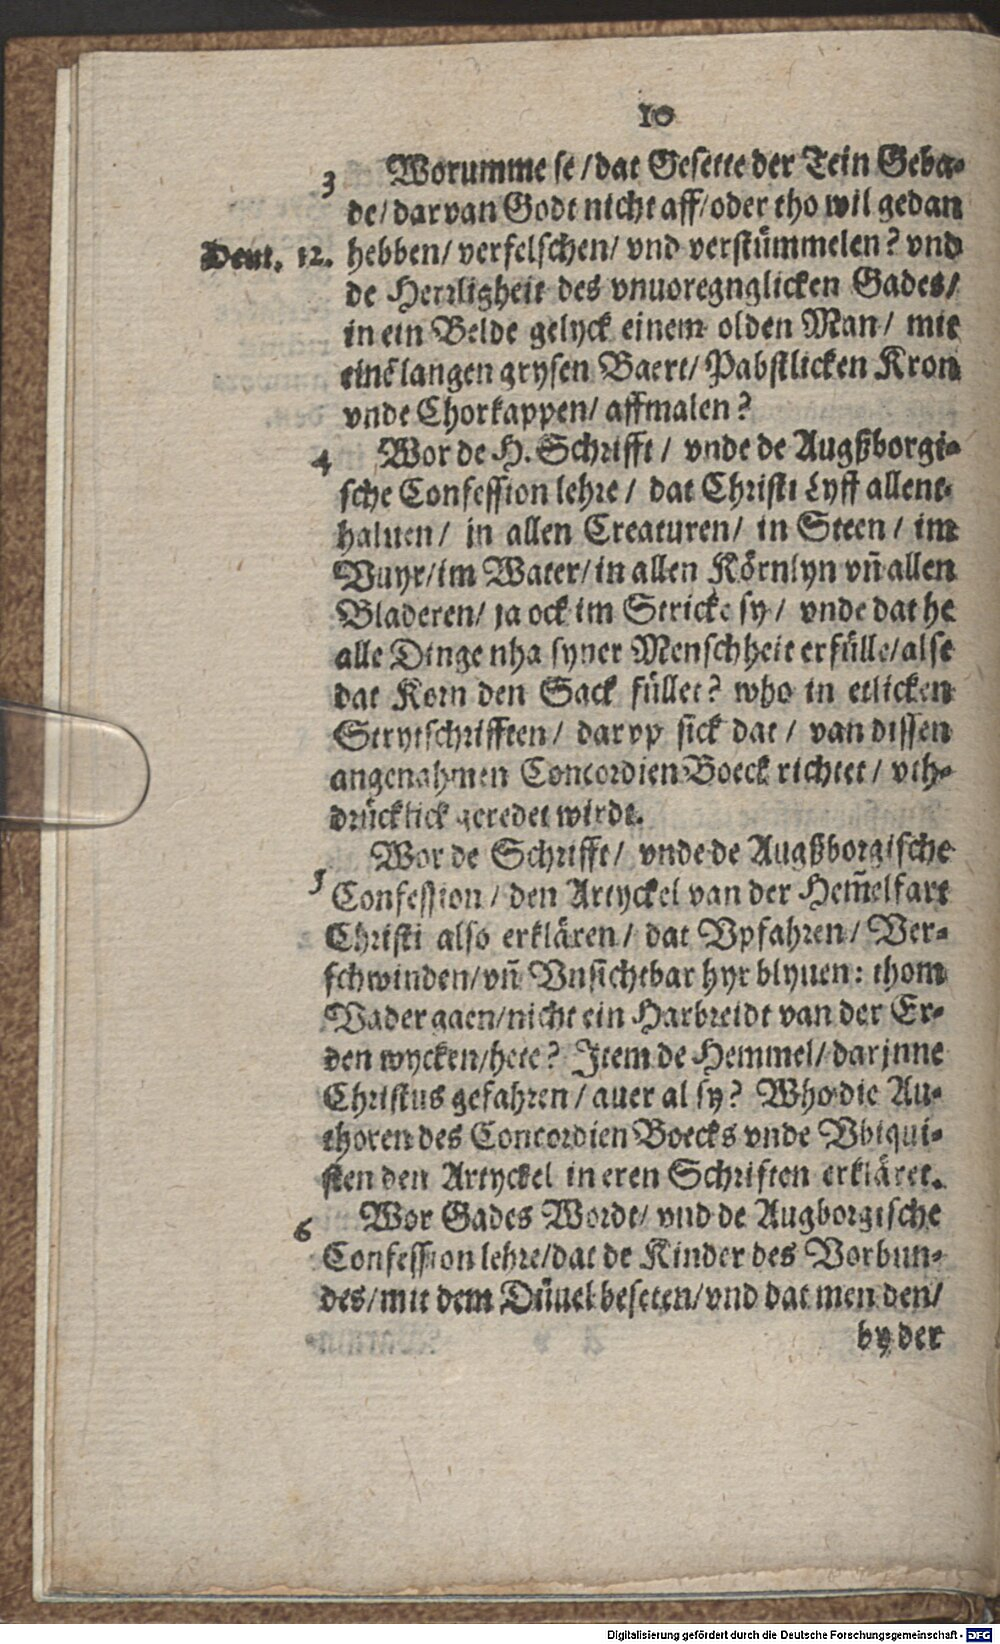 10
3 Worumme se / dat Gesette der Tein Gebo-
de / dar van Godt nicht aff / oder tho wil gedan
Deut. 12. hebben / verfelschen / vnd verstümmelen? vnd
de Herrligheit des vnuoregnglicken Gades /
in ein Belde gelyck einem olden Man / mit
einē langen grysen Baert / Pabstlicken Kron
vnde Chorkappen / affmalen?
4 Wor de H. Schrifft / vnde de Augßborgi-
sche Confession lehre / dat Christi Lyff allent-
haluen / in allen Creaturen / in Steen / im
Vuyr / im Water / in allen Körnlyn vn̄ allen
Bladeren / ja ock im Stricke sy / vnde dat he
alle Dinge nha syner Menschheit erfülle / alse
dat Korn den Sack füllet? who in etlicken
Strytschrifften / dar vp sick dat / van dissen
angenahmen Concordien Boeck richtet / vth-
drücklick geredet wirdt.
5 Wor de Schrifft / vnde de Augßborgische
Confession / den Artyckel van der Hem̄elfart
Christi also erklären / dat Vpfahren / Ver-
schwinden / vn̄ Vnsichtbar hyr blyuen: thom
Vader gaen / nicht ein Harbreidt van der Er-
den wycken / hete? Item de Hemmel / darjnne
Christus gefahren / auer al sy? Who die Au-
thoren des Concordien Boecks vnde Vbiqui-
sten den Artyckel in eren Schriften erkläret.
6 Wor Gades Wordt / vnd de Augborgische
Confession lehre / dat de Kinder des Vorbun-
des / mit dem Düuel beseten / vnd dat men den /
by der
Digitalisierung gefördert durch die Deutsche Forschungsgemeinschaft - DFG